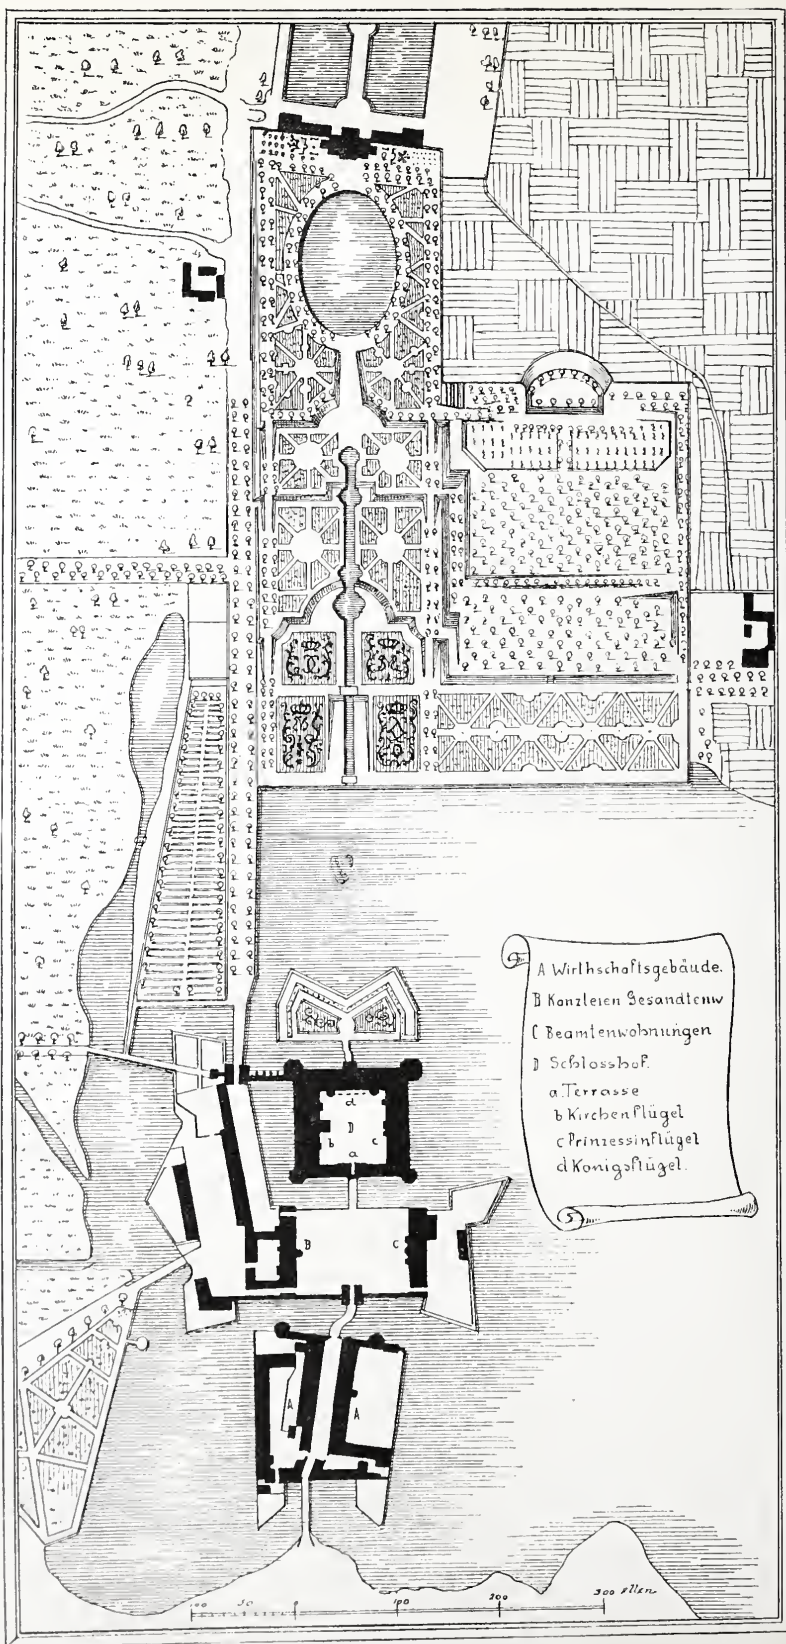 A Wirthschaftsgebäude.
B Kanzleien Gesandtenw
C Beamtenwohnungen
D Schlosshof.
a Terrasse
b Kirchenflügel
c Prinzessinflügel
d Königsflügel.
d
D
b c
a
B C
A A
100 50 100 200 300 Ellen